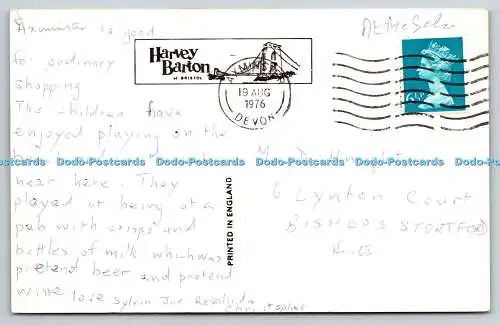 Axminster is good
for ordinary
shopping
The children have
enjoyed playing on the
near here. They
played at being at a
pub with crisps and
bottles of milk which was
pretend beer and pretend
wine love Sylvia Joe Rosalinda
Christopher
Harvey
Barton
of BRISTOL
AXMINSTER
19 AUG
1976
DEVON
PRINTED IN ENGLAND
6 Lynton Court
BISHOPS STORTFORD
Herts
Dodo-Postcards Dodo-Postcards Dodo-Postcards Dodo-Postcards Dodo-Postcards